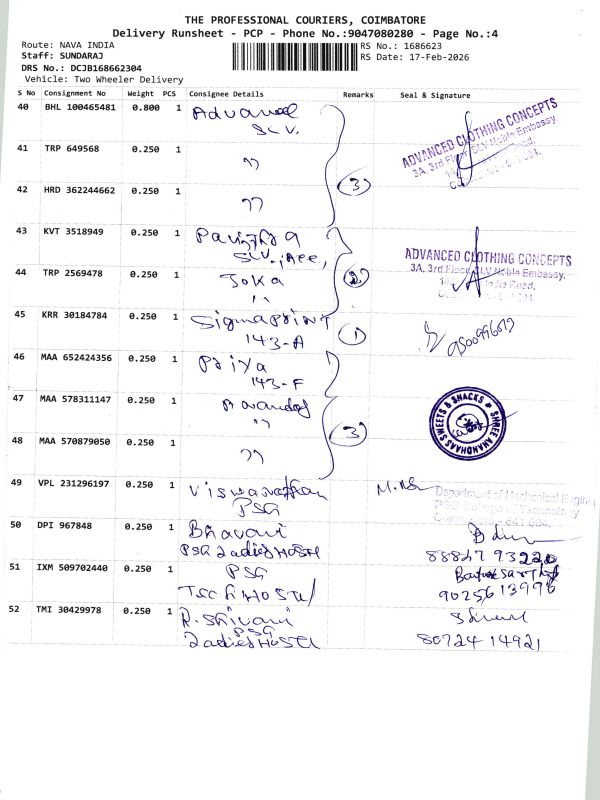 THE PROFESSIONAL COURIERS, COIMBATORE
Delivery Runsheet - PCP - Phone No.:9047080280 - Page No.:4
Route: NAVA INDIA
RS No.: 1686623
Staff: SUNDARAJ
RS Date: 17-Feb-2026
DRS No.: DCJB168662304
Vehicle: Two Wheeler Delivery
S No Consignment No Weight PCS Consignee Details Remarks Seal & Signature
40 BHL 100465481 0.800 1
SLV.
ADVANCED CLOTHING CONCEPTS
3A, 3rd Floor, SLV Noble Embassy,
41 TRP 649568 0.250 1 ,,
42 HRD 362244662 0.250 1 ,, 3
43 KVT 3518949 0.250 1
SLV
ADVANCED CLOTHING CONCEPTS
3A, 3rd Floor, SLV Noble Embassy,
44 TRP 2569478 0.250 1 Joka 2
,,
45 KRR 30184784 0.250 1 Sigma Print 1
143-A
46 MAA 652424356 0.250 1 Priya
143-F
47 MAA 578311147 0.250 1
,,
3
SHREE ANANDHAAS SWEETS & SNACKS
48 MAA 570879050 0.250 1 ,,
49 VPL 231296197 0.250 1 Viswanathan
PSG
Department of Mechanical Engineering
PSG College of Technology
50 DPI 967848 0.250 1 Bhavani
PSG Ladies Hostel
88827 93220
51 IXM 509702440 0.250 1 PSG
Tech Hostel
90256 13996
52 TMI 30429978 0.250 1 R. Shivani
PSG
Ladies Hostel
80724 14921